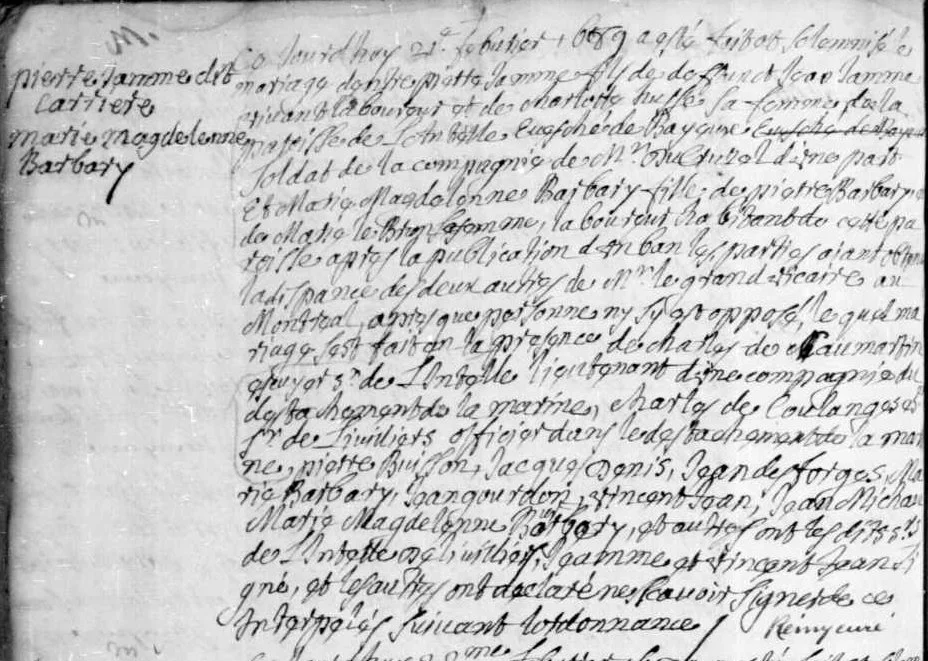 M.
pierre Jamme dit
Carriere
marie magdelenne
Barbary
Ce Jourdhuy 21e february 1689 a esté fait et solemnisé le
mariage de pierre Jamme fils de deffunct Jean Jamme
vivant laboureur et de Charlotte husse sa femme, de la
paroisse de Lantelle Euesché de Bayeux Euesché de Bayeux
Soldat de la compagnie de Mr d'une part
Et Marie Magdelenne Barbary fille de pierre Barbary, et
de Marie le Brun sa femme, laboureur habitant de cette pa
roisse apres la publication d'un ban les parties aiant obtenu
la dispance des deux autres de Mr le grand vicaire au
Montreal, apres que personne ny s'y est opposé, le quel ma
riage s'est fait en la presence de charles de Caumartin
escuyer sr de Lintelle lieutenant d'une compagnie du
destachement de la marine, charles de Coulanges
sr de Liuiliers officier dans le destachement de la mari
ne, pierre Buisson, Jacques Denis, Jean desforges, Ma
rie Barbary, Jean gourdon, vincent Jean, Jean Michau
Marie Magdelenne Barbary, et autres ont les dits srs
de Lintelle de liuiliers, Jamme et vincent Jean si
gné, et les autres ont declaré ne sçavoir signer de ce
Interpelés suivant l'ordonnance
Remy curé